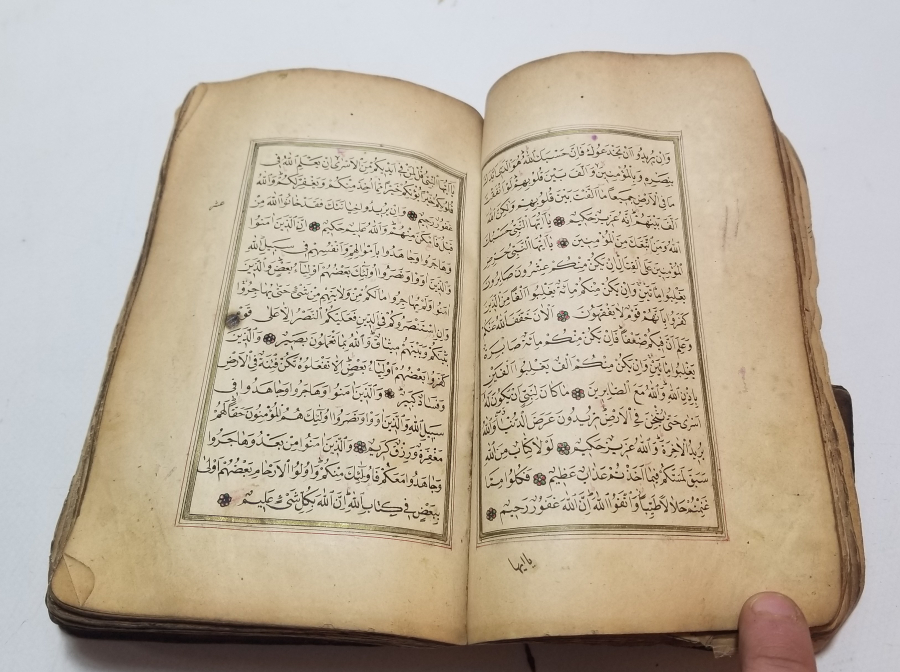 وَاِنْ يُرِيدُوا اَنْ يَخْدَعُوكَ فَاِنَّ حَسْبَكَ اللّٰهُ هُوَ الَّذِى اَيَّدَكَ
بِنَصْرِهِ وَبِالْمُؤْمِنِينَ وَاَلَّفَ بَيْنَ قُلُوبِهِمْ لَوْ اَنْفَقْتَ
مَا فِى الْاَرْضِ جَمِيعًا مَا اَلَّفْتَ بَيْنَ قُلُوبِهِمْ وَلٰكِنَّ اللّٰهَ
اَلَّفَ بَيْنَهُمْ اِنَّهُ عَزِيزٌ حَكِيمٌ يَا اَيُّهَا النَّبِىُّ حَسْبُكَ
اللّٰهُ وَمَنِ اتَّبَعَكَ مِنَ الْمُؤْمِنِينَ يَا اَيُّهَا النَّبِىُّ حَرِّضِ
الْمُؤْمِنِينَ عَلَى الْقِتَالِ اِنْ يَكُنْ مِنْكُمْ عِشْرُونَ صَابِرُونَ
يَغْلِبُوا مِائَتَيْنِ وَاِنْ يَكُنْ مِنْكُمْ مِائَةٌ يَغْلِبُوا اَلْفًا مِنَ الَّذِينَ
كَفَرُوا بِاَنَّهُمْ قَوْمٌ لَا يَفْقَهُونَ اَلْاٰنَ خَفَّفَ اللّٰهُ عَنْكُمْ
وَعَلِمَ اَنَّ فِيكُمْ ضَعْفًا فَاِنْ يَكُنْ مِنْكُمْ مِائَةٌ صَابِرَةٌ
يَغْلِبُوا مِائَتَيْنِ وَاِنْ يَكُنْ مِنْكُمْ اَلْفٌ يَغْلِبُوا اَلْفَيْنِ
بِاِذْنِ اللّٰهِ وَاللّٰهُ مَعَ الصَّابِرِينَ مَا كَانَ لِنَبِىٍّ اَنْ يَكُونَ لَهُ
اَسْرٰى حَتّٰى يُثْخِنَ فِى الْاَرْضِ تُرِيدُونَ عَرَضَ الدُّنْيَا وَاللّٰهُ
يُرِيدُ الْاٰخِرَةَ وَاللّٰهُ عَزِيزٌ حَكِيمٌ لَوْلَا كِتَابٌ مِنَ اللّٰهِ
سَبَقَ لَمَسَّكُمْ فِيمَا اَخَذْتُمْ عَذَابٌ عَظِيمٌ فَكُلُوا مِمَّا
غَنِمْتُمْ حَلَالًا طَيِّبًا وَاتَّقُوا اللّٰهَ اِنَّ اللّٰهَ غَفُورٌ رَحِيمٌ
يا ايها
يَا اَيُّهَا النَّبِىُّ قُلْ لِمَنْ فِى اَيْدِيكُمْ مِنَ الْاَسْرٰى اِنْ يَعْلَمِ اللّٰهُ فِى
قُلُوبِكُمْ خَيْرًا يُؤْتِكُمْ خَيْرًا مِمَّا اُخِذَ مِنْكُمْ وَيَغْفِرْ لَكُمْ وَاللّٰهُ
غَفُورٌ رَحِيمٌ وَاِنْ يُرِيدُوا خِيَانَتَكَ فَقَدْ خَانُوا اللّٰهَ مِنْ
قَبْلُ فَاَمْكَنَ مِنْهُمْ وَاللّٰهُ عَلِيمٌ حَكِيمٌ اِنَّ الَّذِينَ اٰمَنُوا
وَهَاجَرُوا وَجَاهَدُوا بِاَمْوَالِهِمْ وَاَنْفُسِهِمْ فِى سَبِيلِ اللّٰهِ
وَالَّذِينَ اٰوَوْا وَنَصَرُوا اُولٰئِكَ بَعْضُهُمْ اَوْلِيَاءُ بَعْضٍ وَالَّذِينَ
اٰمَنُوا وَلَمْ يُهَاجِرُوا مَا لَكُمْ مِنْ وَلَايَتِهِمْ مِنْ شَىْءٍ حَتّٰى يُهَاجِرُوا
وَاِنِ اسْتَنْصَرُوكُمْ فِى الدِّينِ فَعَلَيْكُمُ النَّصْرُ اِلَّا عَلٰى قَوْمٍ
بَيْنَكُمْ وَبَيْنَهُمْ مِيثَاقٌ وَاللّٰهُ بِمَا تَعْمَلُونَ بَصِيرٌ وَالَّذِينَ
كَفَرُوا بَعْضُهُمْ اَوْلِيَاءُ بَعْضٍ اِلَّا تَفْعَلُوهُ تَكُنْ فِتْنَةٌ فِى الْاَرْضِ
وَفَسَادٌ كَبِيرٌ وَالَّذِينَ اٰمَنُوا وَهَاجَرُوا وَجَاهَدُوا فِى
سَبِيلِ اللّٰهِ وَالَّذِينَ اٰوَوْا وَنَصَرُوا اُولٰئِكَ هُمُ الْمُؤْمِنُونَ حَقًّا لَهُمْ
مَغْفِرَةٌ وَرِزْقٌ كَرِيمٌ وَالَّذِينَ اٰمَنُوا مِنْ بَعْدُ وَهَاجَرُوا
وَجَاهَدُوا مَعَكُمْ فَاُولٰئِكَ مِنْكُمْ وَاُولُوا الْاَرْحَامِ بَعْضُهُمْ اَوْلٰى
بِبَعْضٍ فِى كِتَابِ اللّٰهِ اِنَّ اللّٰهَ بِكُلِّ شَىْءٍ عَلِيمٌ
عشر